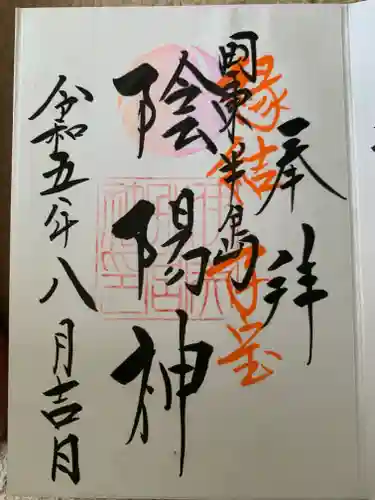 奉拝
縁結 子宝
国東半島
陰陽神
令和五年八月吉日